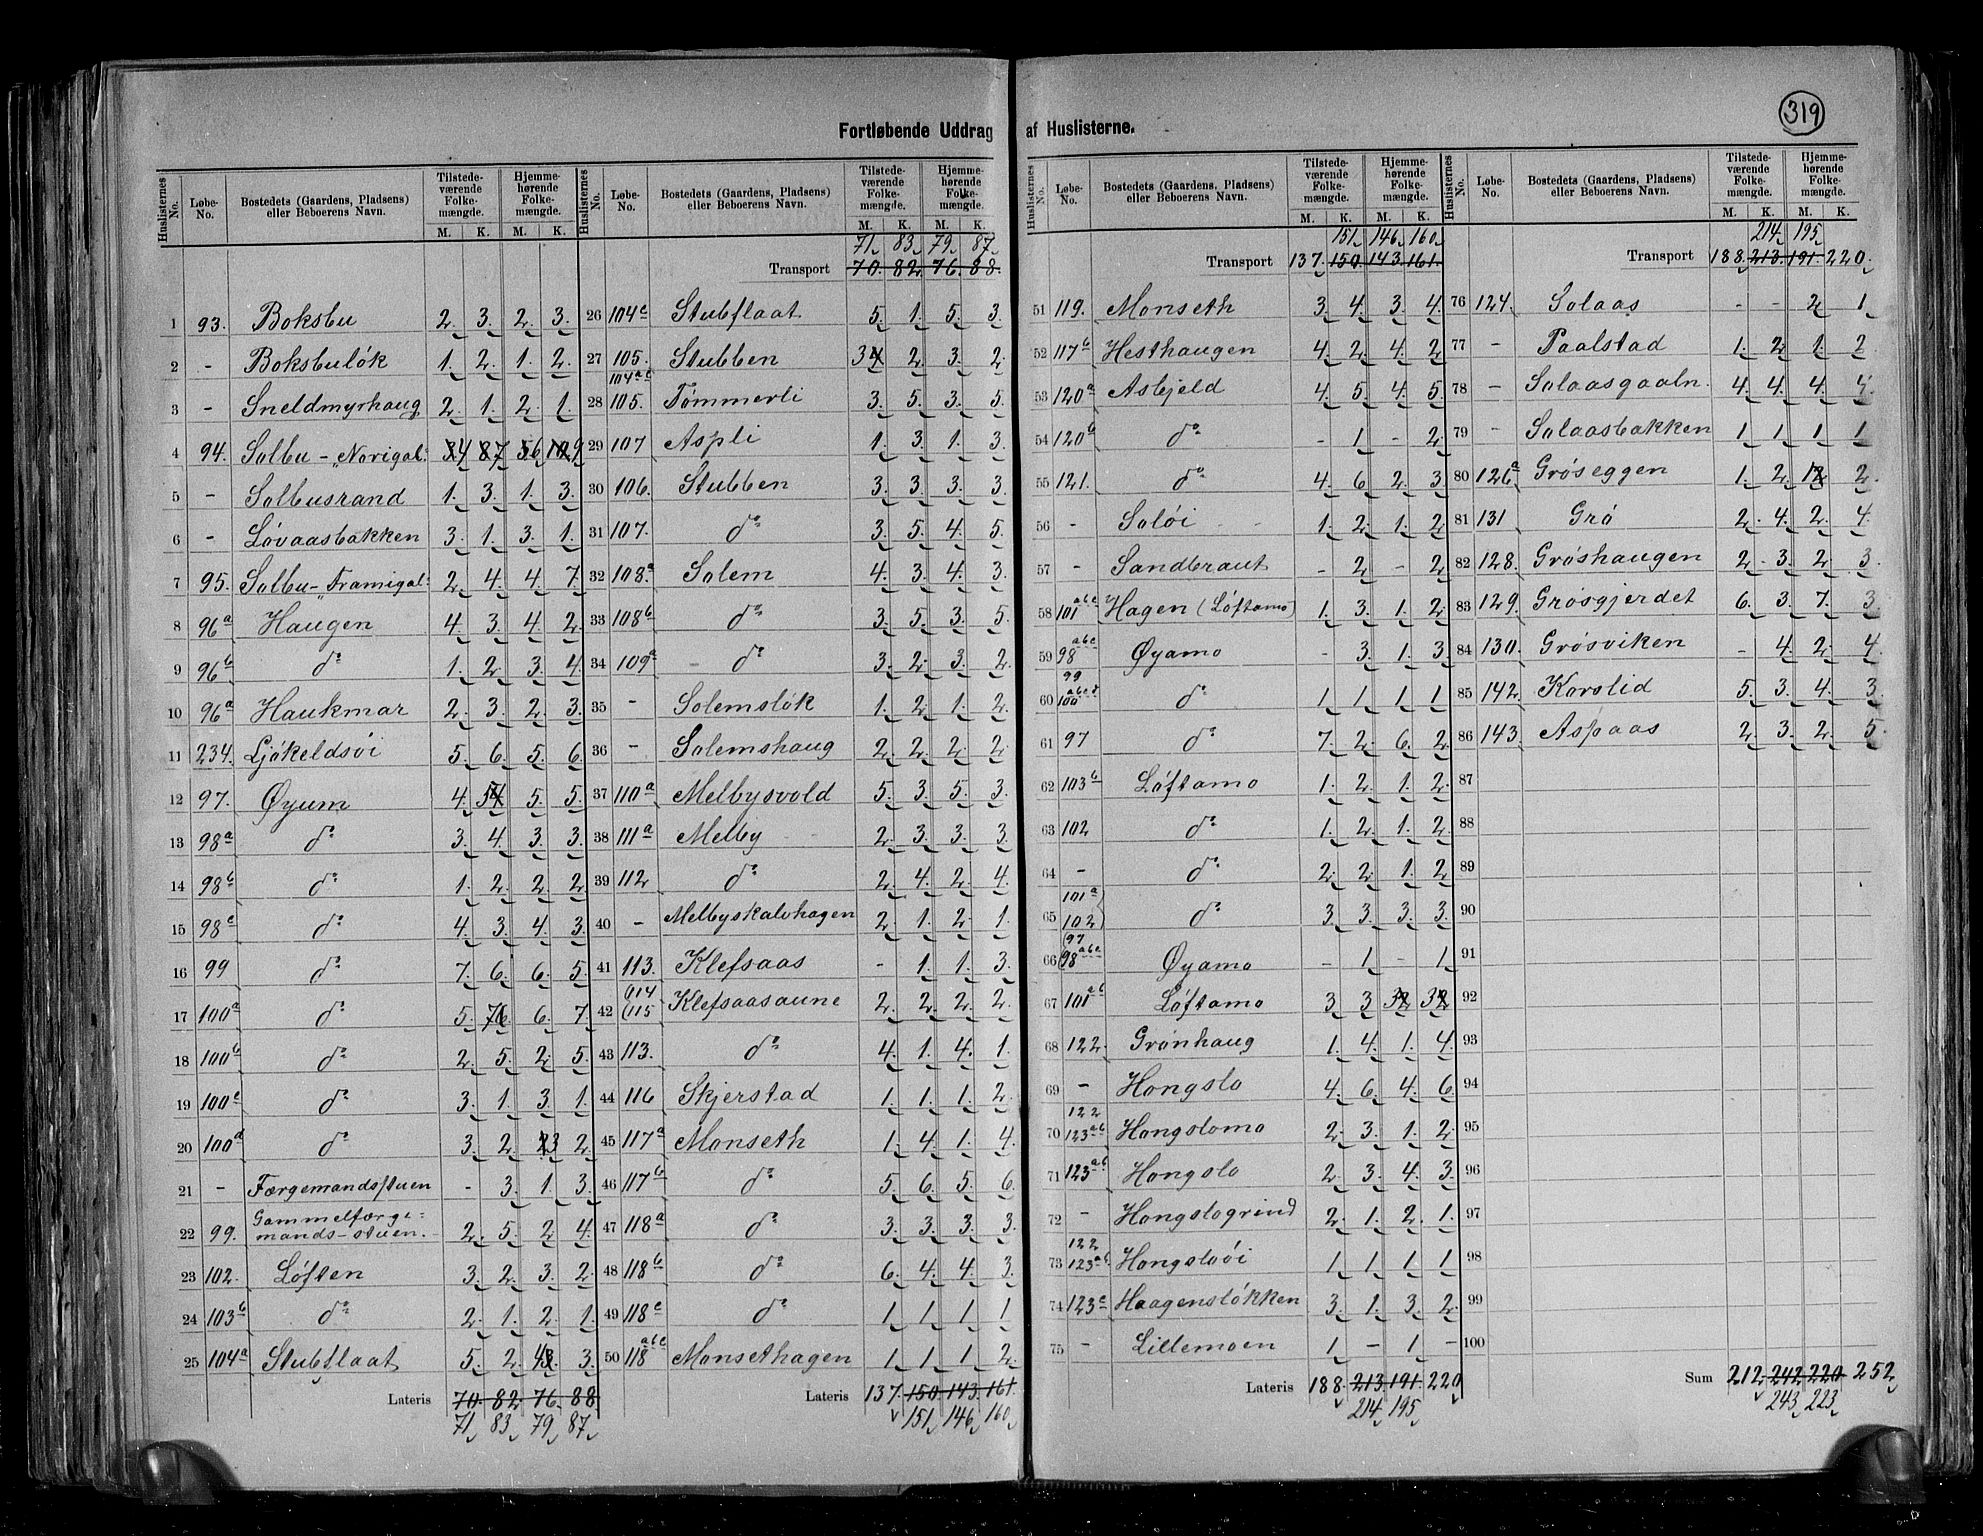 319
Fortløbende Uddrag af Huslisterne.
Huslisternes No. | Løbe-No. | Bostedets (Gaardens, Pladsens) eller Beboerens Navn. | Tilstedeværende Folkemængde. M. K. | Hjemmehørende Folkemængde. M. K.
1 93. Boksbu 2. 3. 2. 3.
2 - Boksbuløk 1. 2. 1. 2.
3 - Sneldmyrhaug 2. 1. 2. 1.
4 94. Solbu - "Norigal: 4 7 6 9
5 - Solbusrand 1. 3. 1. 3.
6 - Løvaasbakken 3. 1. 3. 1.
7 95. Solbu - "Framigal: 2. 4. 4. 7.
8 96a Haugen 4. 3. 4. 2.
9 96b do 1. 2. 3. 4.
10 96a Haukmar 2. 3. 2. 3.
11 234. Ljøkeldsøi 5. 6. 5. 6.
12 97. Øyum 4. 5 5. 5.
13 98a do 3. 4. 3. 3.
14 98b do 1. 2. 2. 2
15 98c do 4. 3. 4. 3.
16 99 do 7. 6. 6. 5.
17 100a do 5. 7 6. 7.
18 100b do 2. 5. 2. 5.
19 100c do 3. 1. 3. 1.
20 100d do 3. 2. 3 2.
21 - Færgemandsstuen - 3. 1. 3.
22 99. Gammelfærgemands-stuen. 2. 5. 2 4.
23 102. Løften 3. 2. 3. 2.
24 103b do 2. 1. 2. 1.
25 104a Stubflaat 5. 2. 4 3.
Lateris 70. 82. 76. 88
71 83 79 87
71 83 79 87
Transport 70. 82. 76. 88.
26 104c Stubflaat 5. 1. 5. 3.
27 105. Stubben 3 2. 3. 2.
28 104ac 105. Tømmerli 3. 5. 3. 5.
29 107 Aspli 1. 3. 1. 3.
30 106. Stubben 3. 3. 3. 3.
31 107. do 3. 5. 4. 5.
32 108a Solem 4. 3. 4. 3.
33 108b do 3. 5. 3. 5.
34 109a do 3. 2. 3. 2.
35 - Solemsløk 1. 2. 1. 2.
36 - Solemshaug 2. 2. 2. 2.
37 110a Melbysvold 5. 3. 5. 3.
38 111a Melby 2. 3. 3. 3.
39 112 do 2. 4. 2. 4.
40 - Melbyskalvhagen 2. 1. 2. 1.
41 113. Klefsaas - 1. 1. 3.
42 114 115 Klefsaasaune 2. 2. 2. 2.
43 113. do 4. 1. 4. 1.
44 116 Skjerstad 1. 1. 1. 2.
45 117a Monseth 1. 4. 1. 4.
46 117b do 5. 6. 5. 6.
47 118a do 3. 3. 3. 3.
48 118b do 6. 4. 4. 3.
49 118c do 1 1 1 1
50 118abc Monsethagen 1 1 1 2.
Lateris 137. 150. 143. 161
151 146 160
151 146 160
Transport 137. 150. 143. 161.
51 119. Monseth 3. 4. 3. 4.
52 117b Hesthaugen 4. 2. 4. 2
53 120a Asbjeld 4. 5. 4. 5.
54 120b do - 1 - 2.
55 121. do 4. 6. 2. 3.
56 - Soløi 1. 2. 1. 2
57 - Sandbraut - 2 - 2
58 101abc Hagen (Løftamo) 1. 3. 1. 2
59 98abc Øyamo - 3. 1. 3
60 99 100abcd do 1 1 1 1
61 97 do 7. 2. 6. 2
62 103b Løftamo 1. 2. 1. 2.
63 102 do 1. 2. 1. 2.
64 - do 2. 2. 1. 2
65 101a 102 do 3. 3. 3. 3.
66 97 98abc Øyamo - 1 - 1
67 101ab Løftamo 3 3 3 3
68 122. Grønhaug 1. 4. 1. 4
69 - Hongslo 4. 6. 4. 6
70 122 123ab Hongslomo 2. 3. 1. 2.
71 123ab Hongslo 2. 3. 4. 3.
72 - Hongslogrind 2. 1. 2. 1.
73 122 123ab Hongsloøi 1 1 1 1
74 123c Haagensløkken 3. 1. 3. 2.
75 - Lillemoen 1 - 1 -
Lateris 188. 213. 191. 220
214 195
214 195
Transport 188. 213. 191. 220.
76 124. Solaas - - 2. 1
77 - Paalstad 1. 2. 1. 2
78 - Solaasgaaln. 4. 4. 4. 4.
79 - Solaasbakken 1 1 1 1
80 126a Grøseggen 1. 2. 2.
81 131 Grø 2. 4. 2. 4.
82 128. Grøshaugen 2. 3. 2. 3.
83 129. Grøsgjerdet 6. 3. 7. 3
84 130. Grøsviken - 4. 2. 4
85 142. Korslid 5. 3. 4. 3
86 143. Aspaas 2. 3. 2. 5.
87
88
89
90
91
92
93
94
95
96
97
98
99
100
Sum 212. 242. 220. 252
243 223